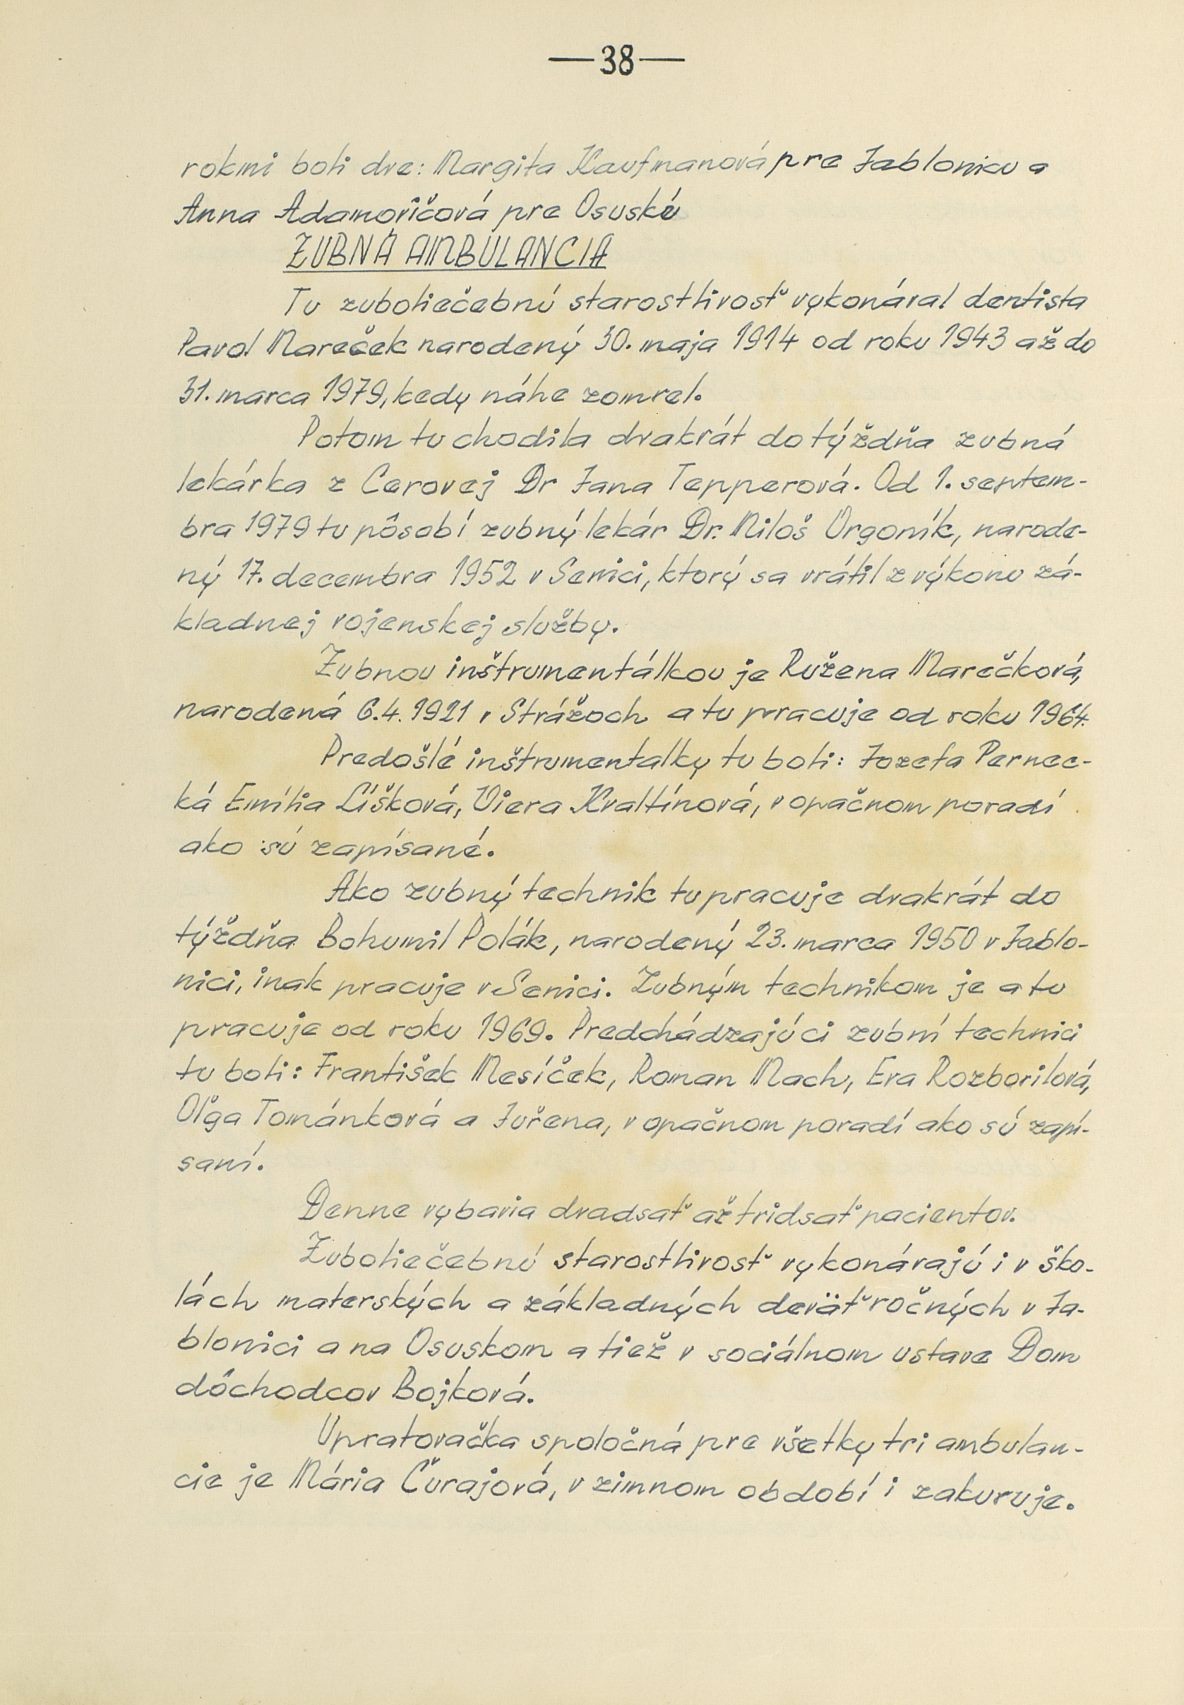 —38—
rokmi boli dve: Margita Kaufmanová pre Jablonicu a
Anna Adamovičová pre Osuské
ZUBNÁ AMBULANCIA
Tu zuboliečebnú starostlivosť vykonával dentista
Pavol Mareček narodený 30. maja 1914 od roku 1943 až do
31. marca 1979, kedy náhe zomrel.
Potom tu chodila dvakrát do týždňa zubná
lekárka z Cerovej Dr Jana Tepperová. Od 1. septem-
bra 1979 tu pôsobí zubný lekár Dr. Miloš Orgoník, narode-
ný 17. decembra 1952 v Senici, ktorý sa vrátil z výkonu zá-
kladnej vojenskej služby.
Zubnou inštrumentálkou je Ružena Marečková,
narodená 6.4.1921 v Strážoch a tu pracuje od roku 1964.
Predošlé inštrumentalky tu boli: Jozefa Pernec-
ká Emília Líšková, Viera Kvaltínová, v opačnom poradí
ako sú zapísané.
Ako zubný technik tu pracuje dvakrát do
týždňa Bohumil Polák, narodený 23. marca 1950 v Jablo-
nici, inak pracuje v Senici. Zubným technikom je a tu
pracuje od roku 1969. Predchádzajúci zubní technici
tu boli: František Mesíček, Roman Mach, Eva Rozborilová,
Oľga Tománková a Juřena, v opačnom poradí ako sú zapí-
saní.
Denne vybavia dvadsať až tridsať pacientov.
Zuboliečebnú starostlivosť vykonávajú i v ško-
lách materských a základných deväťročných v Ja-
blonici a na Osuskom a tiež v sociálnom ustave Dom
dôchodcov Bojková.
Upratovačka spoločná pre všetky tri ambulan-
cie je Mária Čurajová, v zimnom období i zakuruje.